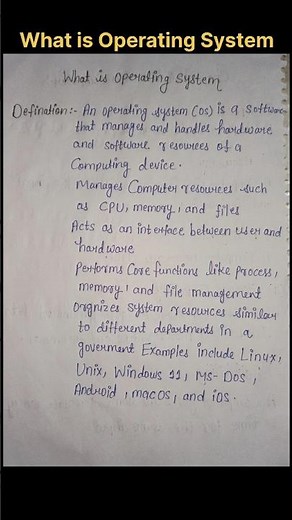 What is Operating System
What is operating system
Defination:- An operating system (os) is a software
that manages and handles hardware
and software resources of a
Computing device.
Manages Computer resources such
as CPU, memory, and files
Acts as an interface between user and
hardware
Performs Core functions like process,
memory, and file management
orgnizes system resources similar
to different departments in a
goverment Examples include Linux,
Unix, Windows 11, MS-Dos,
Android, macos, and ios.